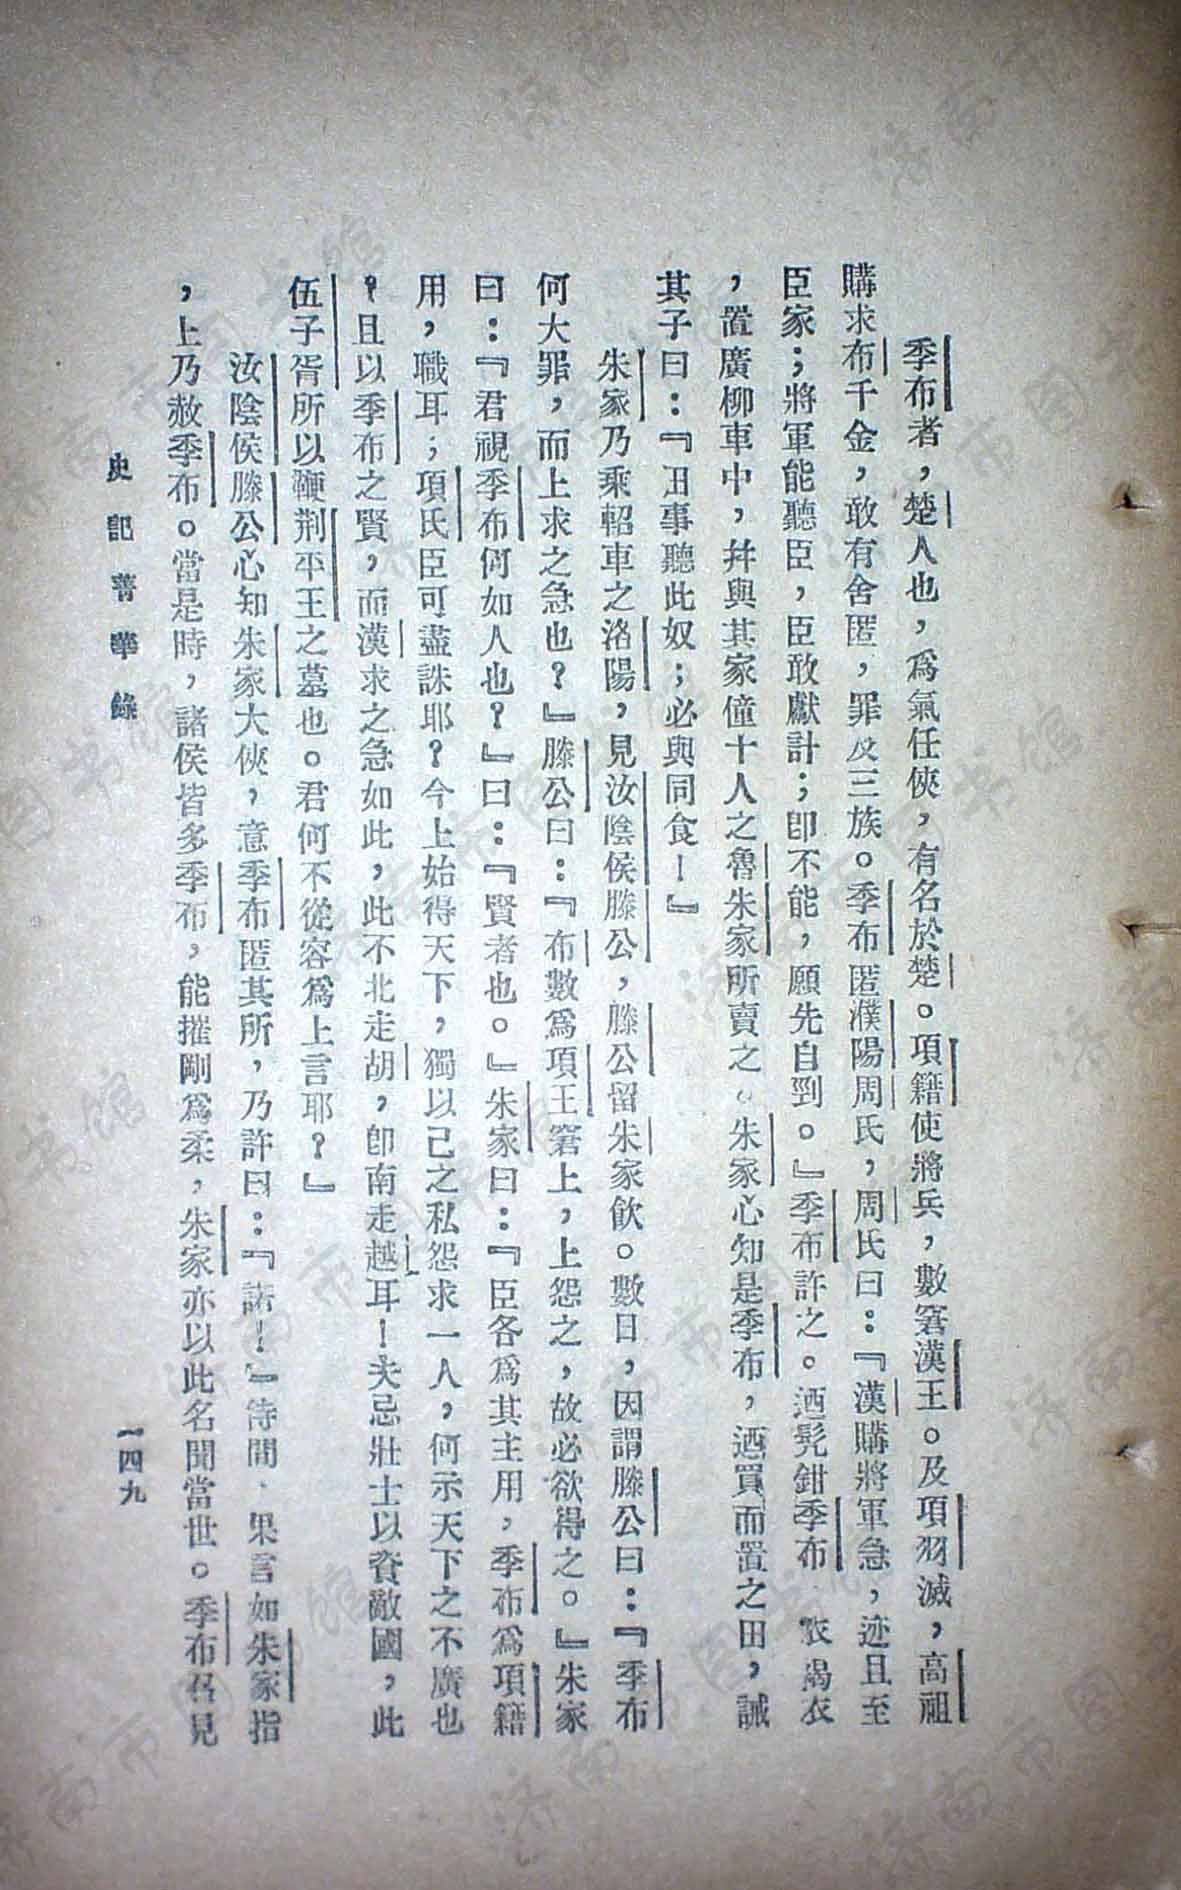 季布者，楚人也，爲氣任俠，有名於楚。項籍使將兵，數窘漢王。及項羽滅，高祖
購求布千金，敢有舍匿，罪及三族。季布匿濮陽周氏，周氏曰：『漢購將軍急，迹且至
臣家；將軍能聽臣，臣敢獻計；卽不能，願先自剄。』季布許之。迺髠鉗季布，衣褐衣
，置廣柳車中，幷與其家僮十人之魯朱家所賣之。朱家心知是季布，迺買而置之田，誡
其子曰：『田事聽此奴；必與同食！』
朱家乃乘軺車之洛陽，見汝陰侯滕公，滕公留朱家飮。數日，因謂滕公曰：『季布
何大罪，而上求之急也？』滕公曰：『布數爲項王窘上，上怨之，故必欲得之。』朱家
曰：『君視季布何如人也？』曰：『賢者也。』朱家曰：『臣各爲其主用，季布爲項籍
用，職耳；項氏臣可盡誅耶？今上始得天下，獨以己之私怨求一人，何示天下之不廣也
？且以季布之賢，而漢求之急如此，此不北走胡，卽南走越耳！夫忌壯士以資敵國，此
伍子胥所以鞭荆平王之墓也。君何不從容爲上言耶？』
汝陰侯滕公心知朱家大俠，意季布匿其所，乃許曰：『諾！』待間，果言如朱家指
，上乃赦季布。當是時，諸侯皆多季布，能摧剛爲柔，朱家亦以此名聞當世。季布召見
史記菁華錄
一四九